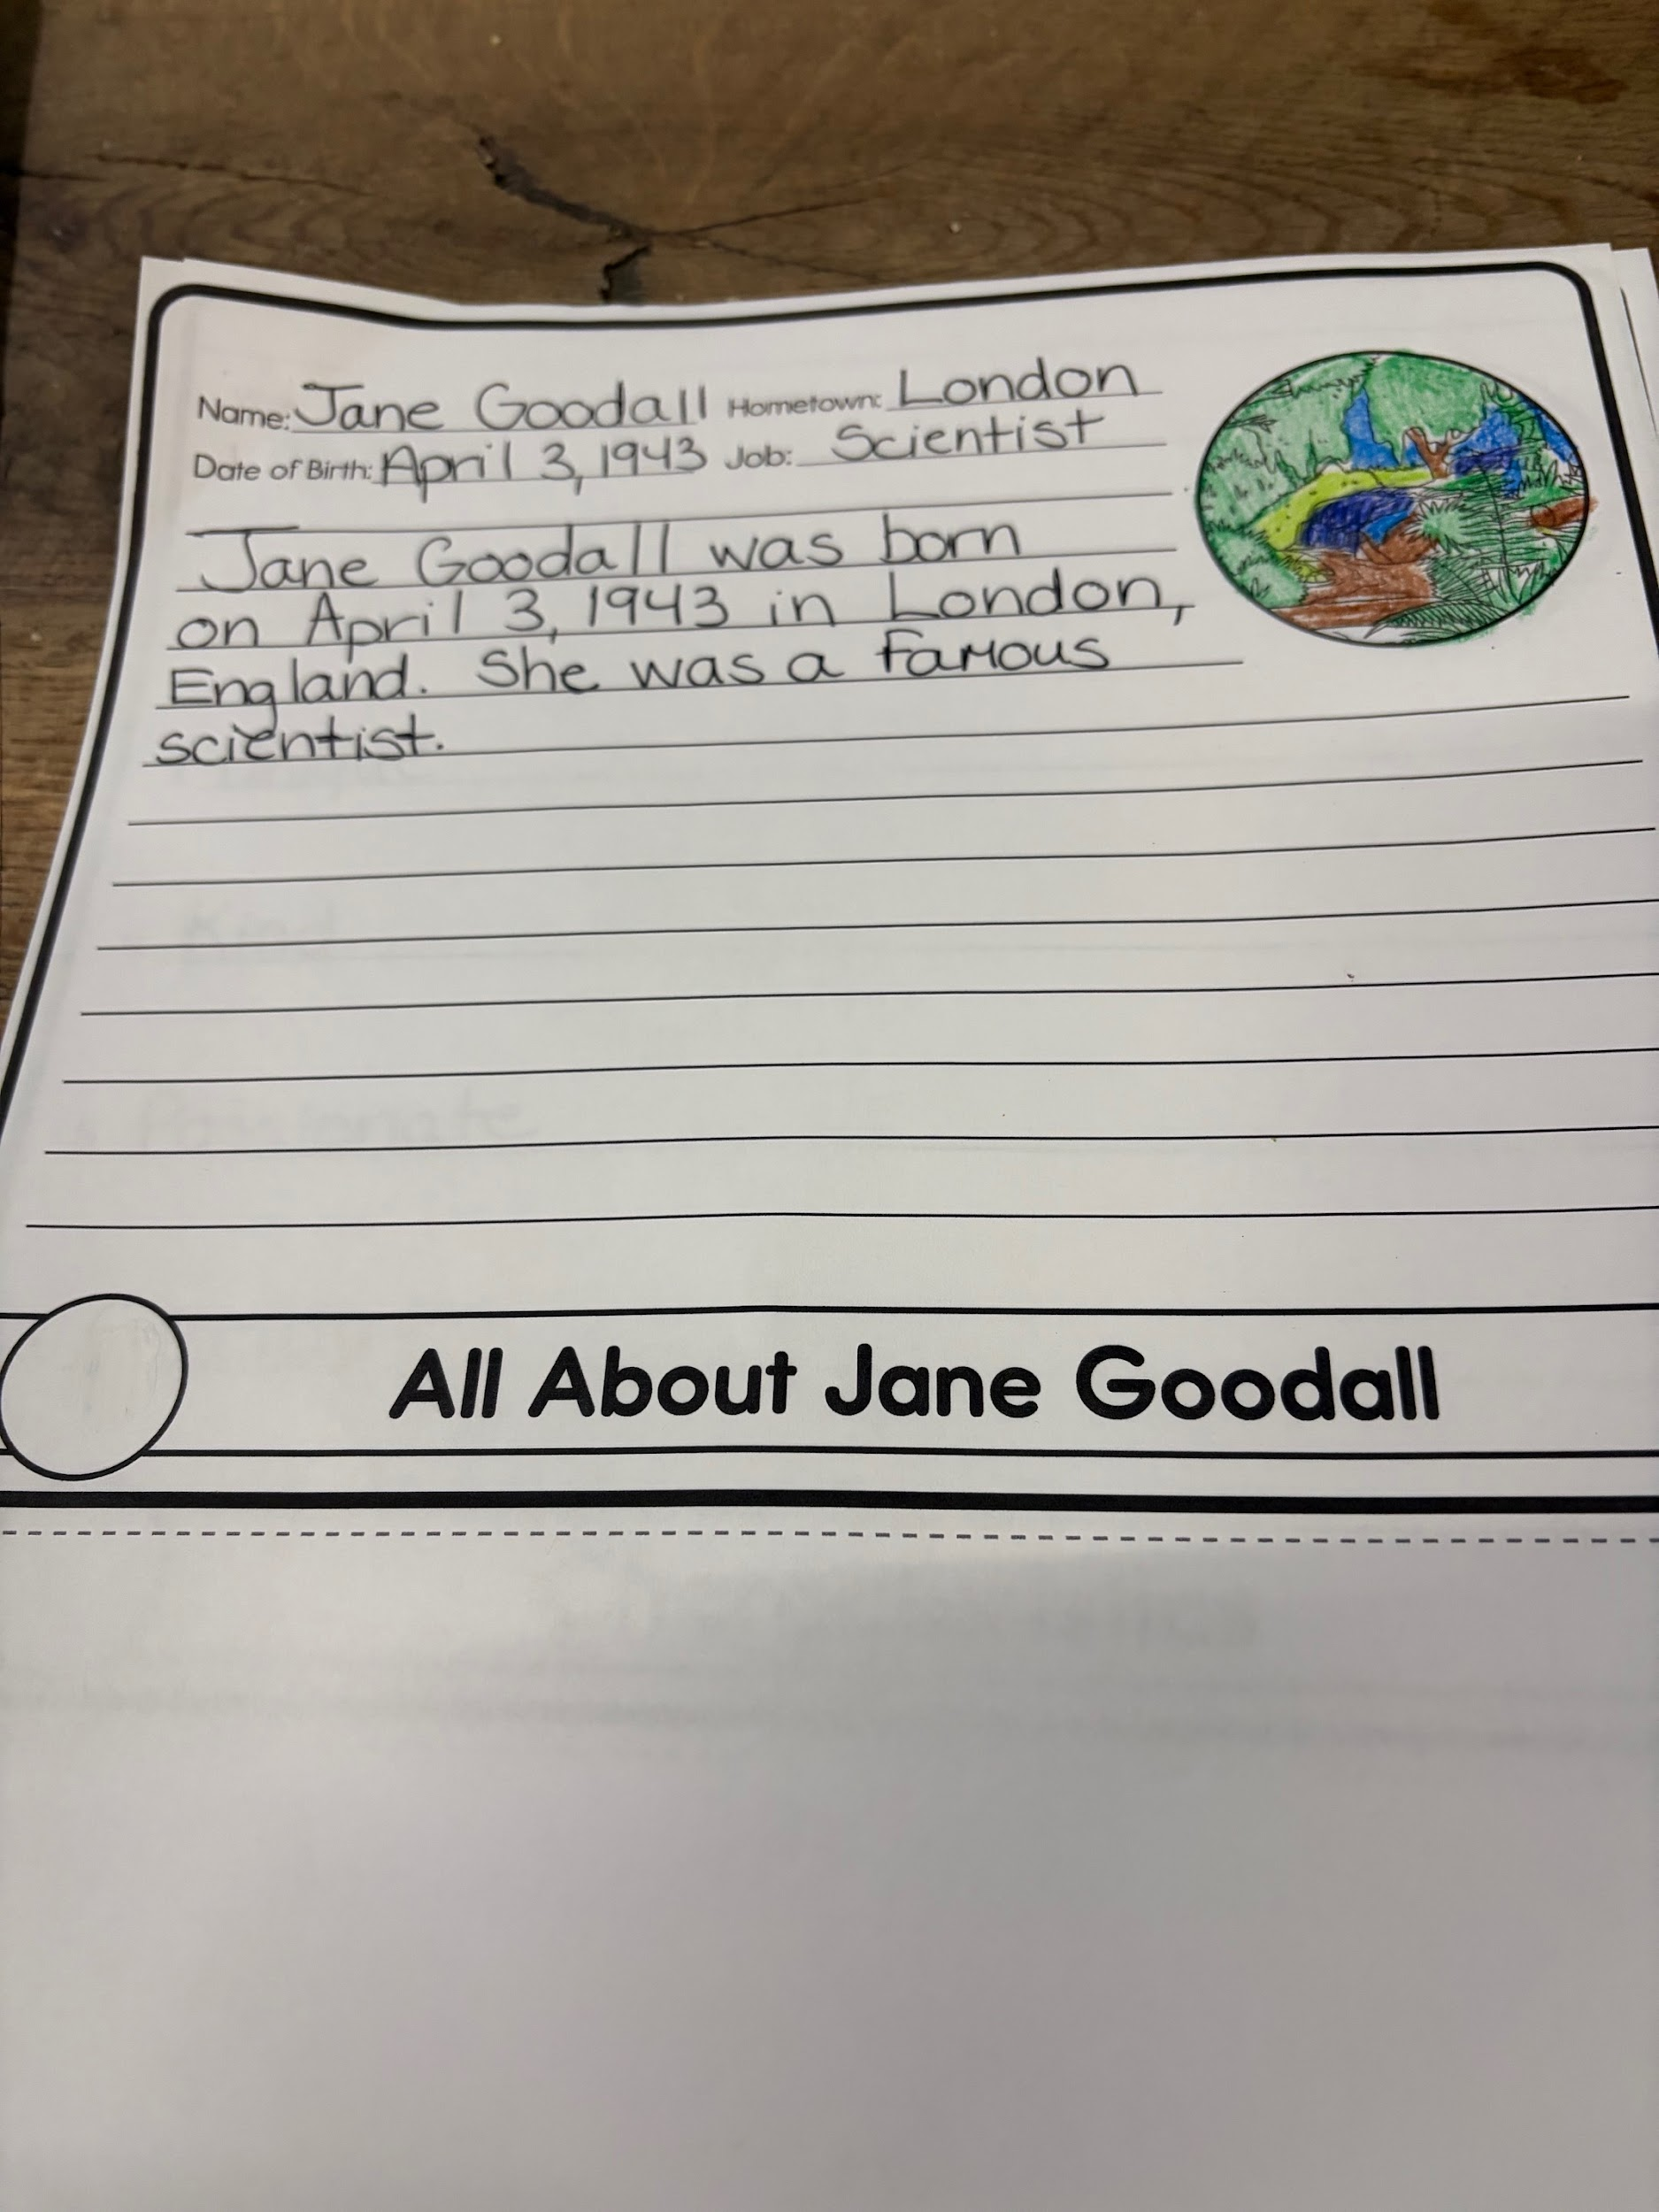 Name: Jane Goodall Hometown: London
Date of Birth: April 3, 1943 Job: Scientist
Jane Goodall was born
on April 3, 1943 in London,
England. She was a famous
scientist.
Kind
All About Jane Goodall